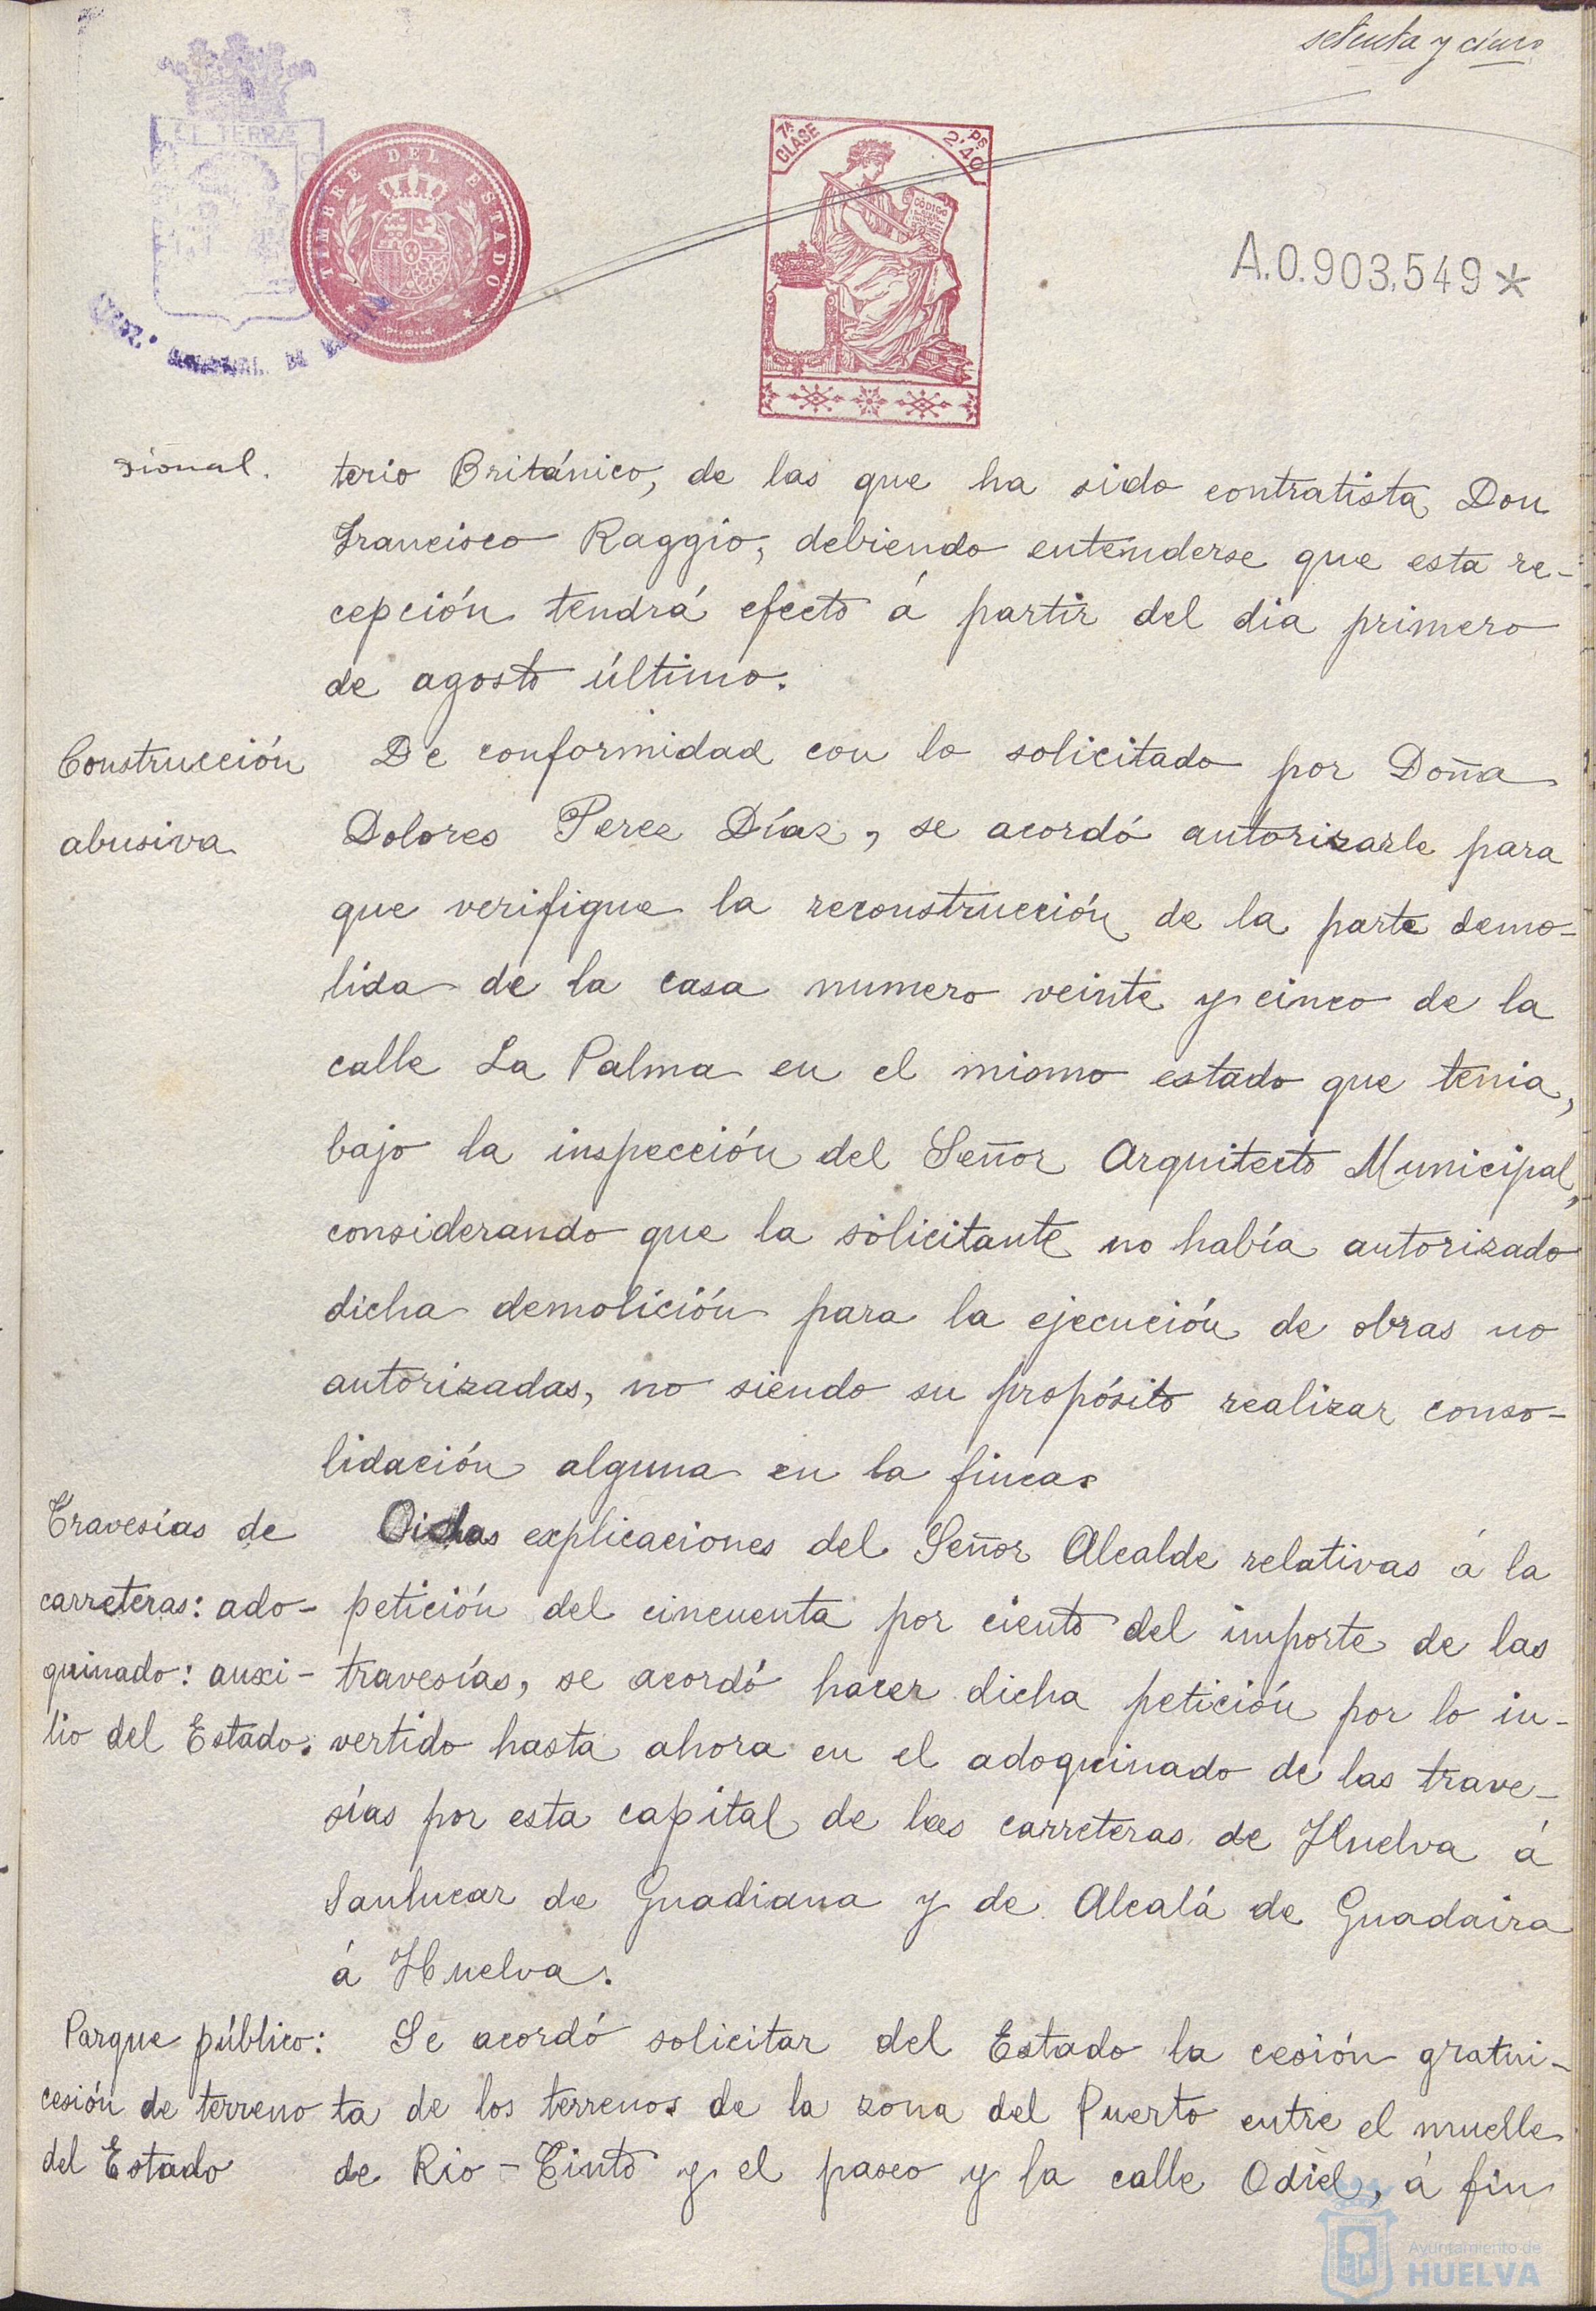 setenta y cinco
TERRÆ
TIMBRE DEL ESTADO
7ª CLASE
2'40 Ps
CÓDIGO
A.0.903.549*
sional.
terio Británico, de las que ha sido contratista Don
Francisco Raggio, debiendo entenderse que esta re-
cepción tendrá efecto á partir del dia primero
de agosto último.
Construcción
abusiva
De conformidad con lo solicitado por Doña
Dolores Perez Díaz, se acordó autorizarle para
que verifique la reconstrucción de la parte demo-
lida de la casa numero veinte y cinco de la
calle La Palma en el mismo estado que tenia,
bajo la inspección del Señor Arquitecto Municipal,
considerando que la solicitante no había autorizado
dicha demolición para la ejecución de obras no
autorizadas, no siendo su propósito realizar conso-
lidación alguna en la finca.
Travesías de
carreteras: ado-
quinado: auxi-
lio del Estado.
Oidas explicaciones del Señor Alcalde relativas á la
petición del cincuenta por ciento del importe de las
travesías, se acordó hacer dicha petición por lo in-
vertido hasta ahora en el adoquinado de las trave-
sías por esta capital de las carreteras de Huelva á
Sanlucar de Guadiana y de Alcalá de Guadaira
á Huelva.
Parque público:
cesión de terreno
del Estado
Se acordó solicitar del Estado la cesión gratui-
ta de los terrenos de la zona del Puerto entre el muelle
de Rio-Tinto y el paseo y la calle Odiel, á fin
Ayuntamiento de
HUELVA